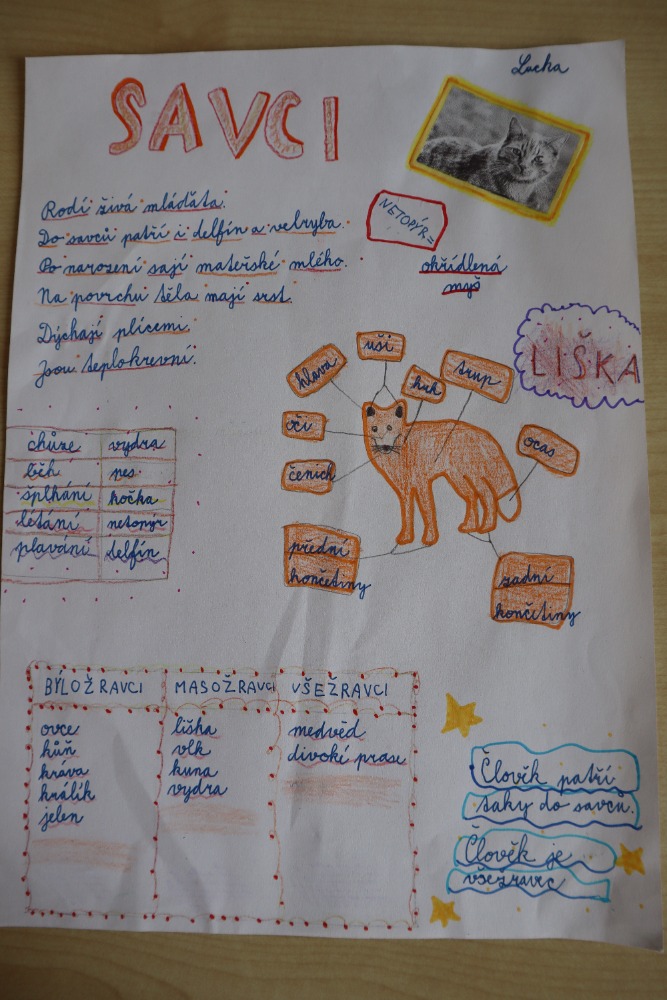 Lucka
SAVCI
Rodí živá mláďata.
Do savců patří i delfín a velryba.
Po narození sají mateřské mléko.
Na povrchu těla mají srst.
Dýchají plícemi.
Jsou teplokrevní.
NETOPÝR=
okřídlená
myš
LIŠKA
uši
hlava
krk
trup
oči
čenich
ocas
přední
končetiny
zadní
končetiny
chůze vydra
běh pes
šplhání kočka
létání netopýr
plavání delfín
BÝLOŽRAVCI MASOŽRAVCI VŠEŽRAVCI
ovce liška medvěd
kůň vlk divoké prase
kráva kuna
králík vydra
jelen
Člověk patří
taky do savců.
Člověk je
všežravec